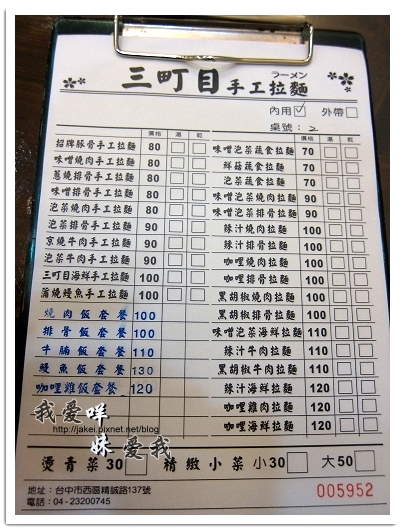 三町目手工拉麵
ラーメン
內用 外帶
桌號：2
價格 湯 乾
招牌豚骨手工拉麵 80
味噌燒肉手工拉麵 80
蔥燒排骨手工拉麵 80
味噌排骨手工拉麵 80
泡菜燒肉手工拉麵 90
泡菜排骨手工拉麵 90
京燒牛肉手工拉麵 90
泡菜牛肉手工拉麵 90
三町目海鮮手工拉麵 100
蒲燒鰻魚手工拉麵 100
燒肉飯套餐 100
排骨飯套餐 100
牛腩飯套餐 110
鰻魚飯套餐 130
咖哩雞飯套餐 120
價格 湯 乾
味噌泡菜蔬食拉麵 70
鮮菇蔬食拉麵 70
泡菜蔬食拉麵 70
味噌泡菜燒肉拉麵 90
味噌泡菜排骨拉麵 90
辣汁燒肉拉麵 100
辣汁排骨拉麵 100
咖哩燒肉拉麵 100
咖哩排骨拉麵 100
黑胡椒燒肉拉麵 100
黑胡椒排骨拉麵 100
味噌泡菜海鮮拉麵 110
辣汁牛肉拉麵 110
黑胡椒牛肉拉麵 110
辣汁海鮮拉麵 120
咖哩雞肉拉麵 120
咖哩海鮮拉麵 120
我愛咩
http://jakei.pixnet.net/blog
妹愛我
燙青菜30 精緻小菜 小30 大50
地址：台中市西區精誠路137號
電話：04-23200745
005952